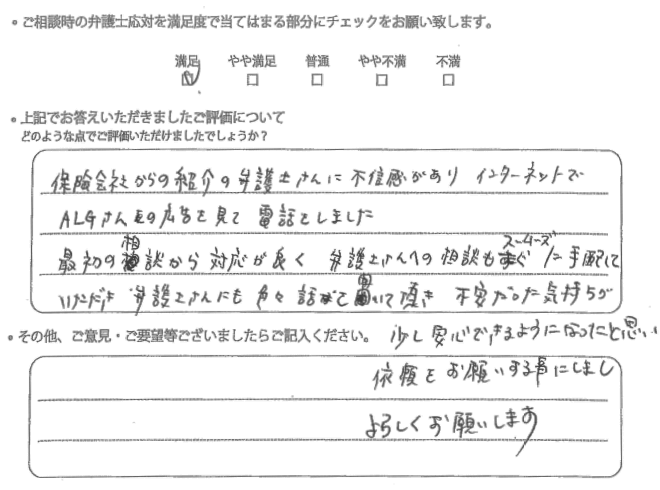 ・ご相談時の弁護士応対を満足度で当てはまる部分にチェックをお願い致します。
満足 やや満足 普通 やや不満 不満
・上記でお答えいただきましたご評価について
どのような点でご評価いただけましたでしょうか？
保険会社からの紹介の弁護士さんに不信感があり インターネットで
ALGさんの広告を見て 電話をしました
最初の相談から対応が良く 弁護士さんへの相談もスムーズに手配して
いただき 弁護士さんにも色々話を聞いて頂き 不安だった気持ちが
・その他、ご意見・ご要望等ございましたらご記入ください。 少し安心できるようになったと思い
依頼をお願いする事にしまし
よろしくお願いします